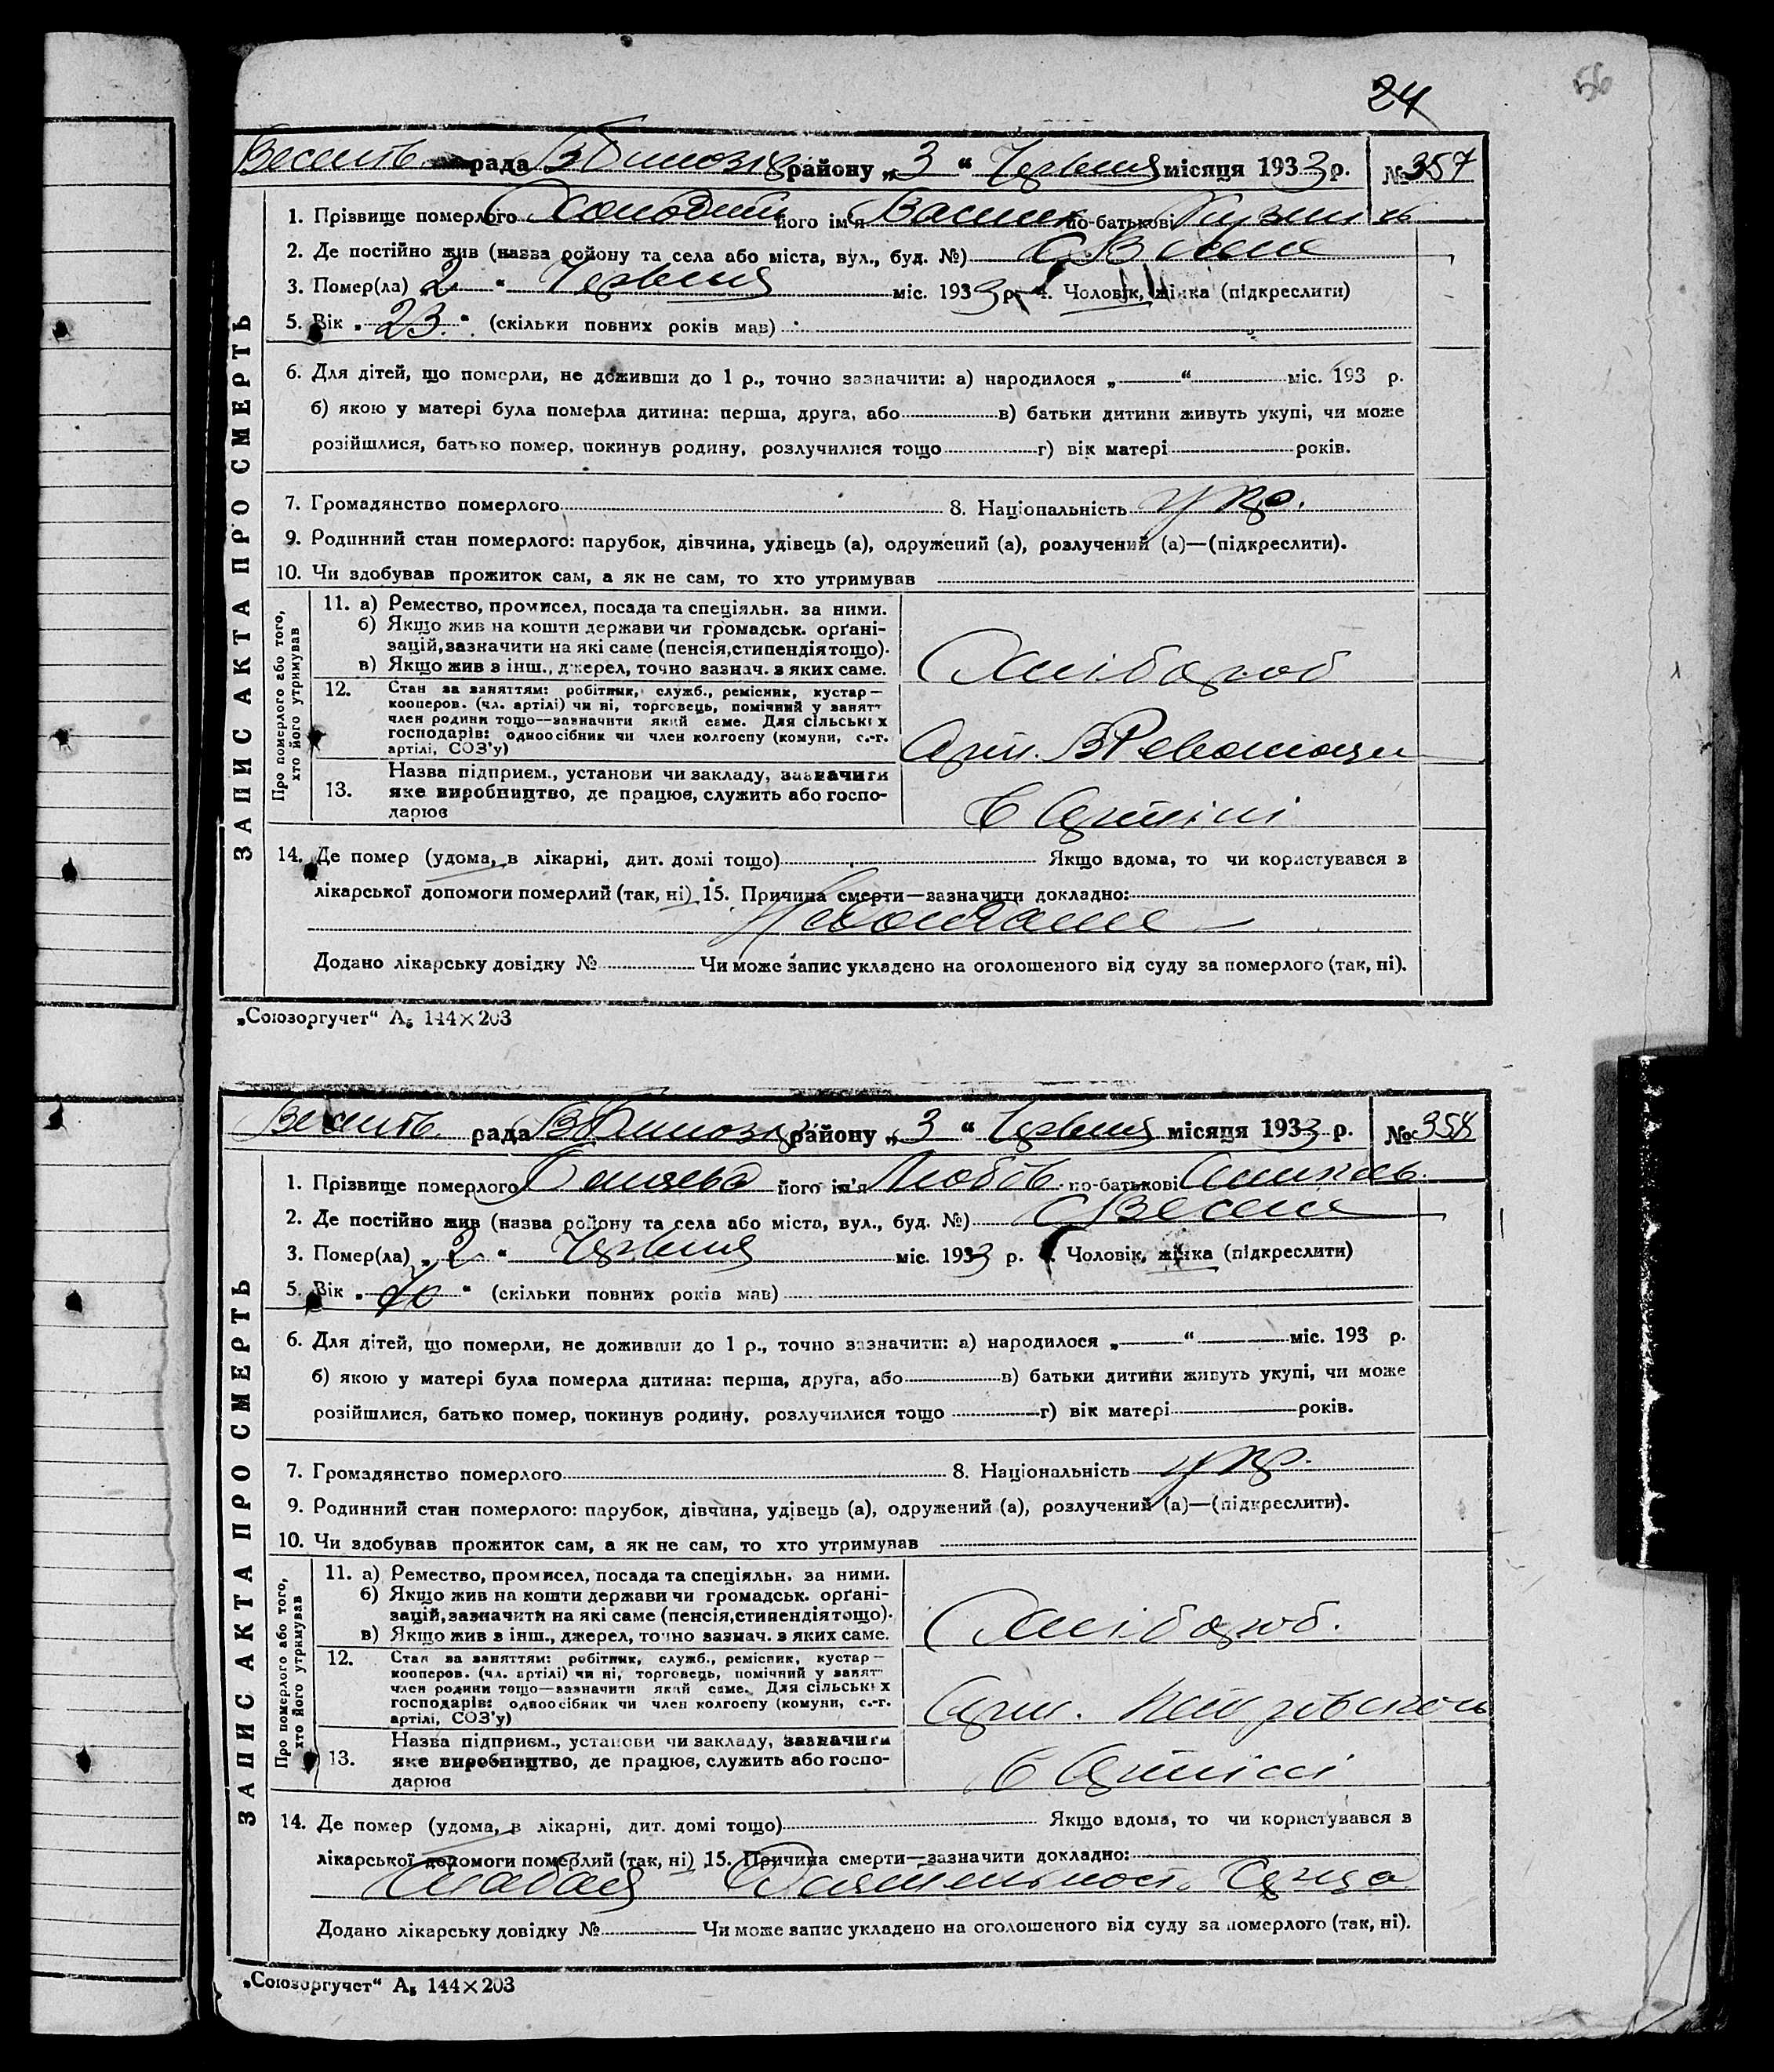 56
24
рада району „3“ Червня місяця 1933 р. № 357
ЗАПИС АКТА ПРО СМЕРТЬ
1. Прізвище померлого Холодний його ім'я Василь по-батькові
2. Де постійно жив (назва району та села або міста, вул., буд. №)
3. Помер(ла) „2“ Червня міс. 1933 р. 4. Чоловік, жінка (підкреслити)
5. Вік „23.“ (скільки повних років мав)
6. Для дітей, що померли, не доживши до 1 р., точно зазначити: а) народилося „ “ міс. 193 р.
б) якою у матері була померла дитина: перша, друга, або в) батьки дитини живуть укупі, чи може
розійшлися, батько помер, покинув родину, розлучилися тощо г) вік матері років.
7. Громадянство померлого 8. Національність укр.
9. Родинний стан померлого: парубок, дівчина, удівець (а), одружений (а), розлучений (а)—(підкреслити).
10. Чи здобував прожиток сам, а як не сам, то хто утримував
Про померлого або того,
хто його утримував
11. а) Ремество, промисел, посада та спеціяльн. за ними.
б) Якщо жив на кошти держави чи громадськ. орґані-
зацій, зазначити на які саме (пенсія, стипендія тощо).
в) Якщо жив з інш., джерел, точно зазнач. з яких саме.
Хлібороб
12. Стан за заняттям: робітник, служб., ремісник, кустар—
кооперов. (чл. артілі) чи ні, торговець, помічний у занятт
член родини тощо—зазначити який саме. Для сільських
господарів: одноосібник чи член колгоспу (комуни, с.-г.
артілі, СОЗ'у)
Арт.
Назва підприєм., установи чи закладу, зазначити
13. яке виробництво, де працює, служить або госпо-
дарює
в Артілі
14. Де помер (удома, в лікарні, дит. домі тощо) Якщо вдома, то чи користувався з
лікарської допомоги померлий (так, ні) 15. Причина смерти—зазначити докладно:
Додано лікарську довідку № Чи може запис укладено на оголошеного від суду за померлого (так, ні).
„Союзоргучет“ А₅ 144×203
рада району „3“ Червня місяця 1933 р. № 358
ЗАПИС АКТА ПРО СМЕРТЬ
1. Прізвище померлого його ім'я Любов по-батькові
2. Де постійно жив (назва району та села або міста, вул., буд. №) с Веселе
3. Помер(ла) „2“ Червня міс. 1933 р. Чоловік, жінка (підкреслити)
5. Вік „ “ (скільки повних років мав)
6. Для дітей, що померли, не доживши до 1 р., точно зазначити: а) народилося „ “ міс. 193 р.
б) якою у матері була померла дитина: перша, друга, або в) батьки дитини живуть укупі, чи може
розійшлися, батько помер, покинув родину, розлучилися тощо г) вік матері років.
7. Громадянство померлого 8. Національність укр.
9. Родинний стан померлого: парубок, дівчина, удівець (а), одружений (а), розлучений (а)—(підкреслити).
10. Чи здобував прожиток сам, а як не сам, то хто утримував
Про померлого або того,
хто його утримував
11. а) Ремество, промисел, посада та спеціяльн. за ними.
б) Якщо жив на кошти держави чи громадськ. орґані-
зацій, зазначити на які саме (пенсія, стипендія тощо).
в) Якщо жив з інш., джерел, точно зазнач. з яких саме.
Хлібороб.
12. Стан за заняттям: робітник, служб., ремісник, кустар—
кооперов. (чл. артілі) чи ні, торговець, помічний у занят
член родини тощо—зазначити який саме. Для сільських
господарів: одноосібник чи член колгоспу (комуни, с.-г.
артілі, СОЗ'у)
Арт.
Назва підприєм., установи чи закладу, зазначити
13. яке виробництво, де працює, служить або госпо-
дарює
в Артілі
14. Де помер (удома, в лікарні, дит. домі тощо) Якщо вдома, то чи користувався з
лікарської допомоги померлий (так, ні) 15. Причина смерти—зазначити докладно:
Слабая Деятельность
Додано лікарську довідку № Чи може запис укладено на оголошеного від суду за померлого (так, ні).
„Союзоргучет“ А₅ 144×203